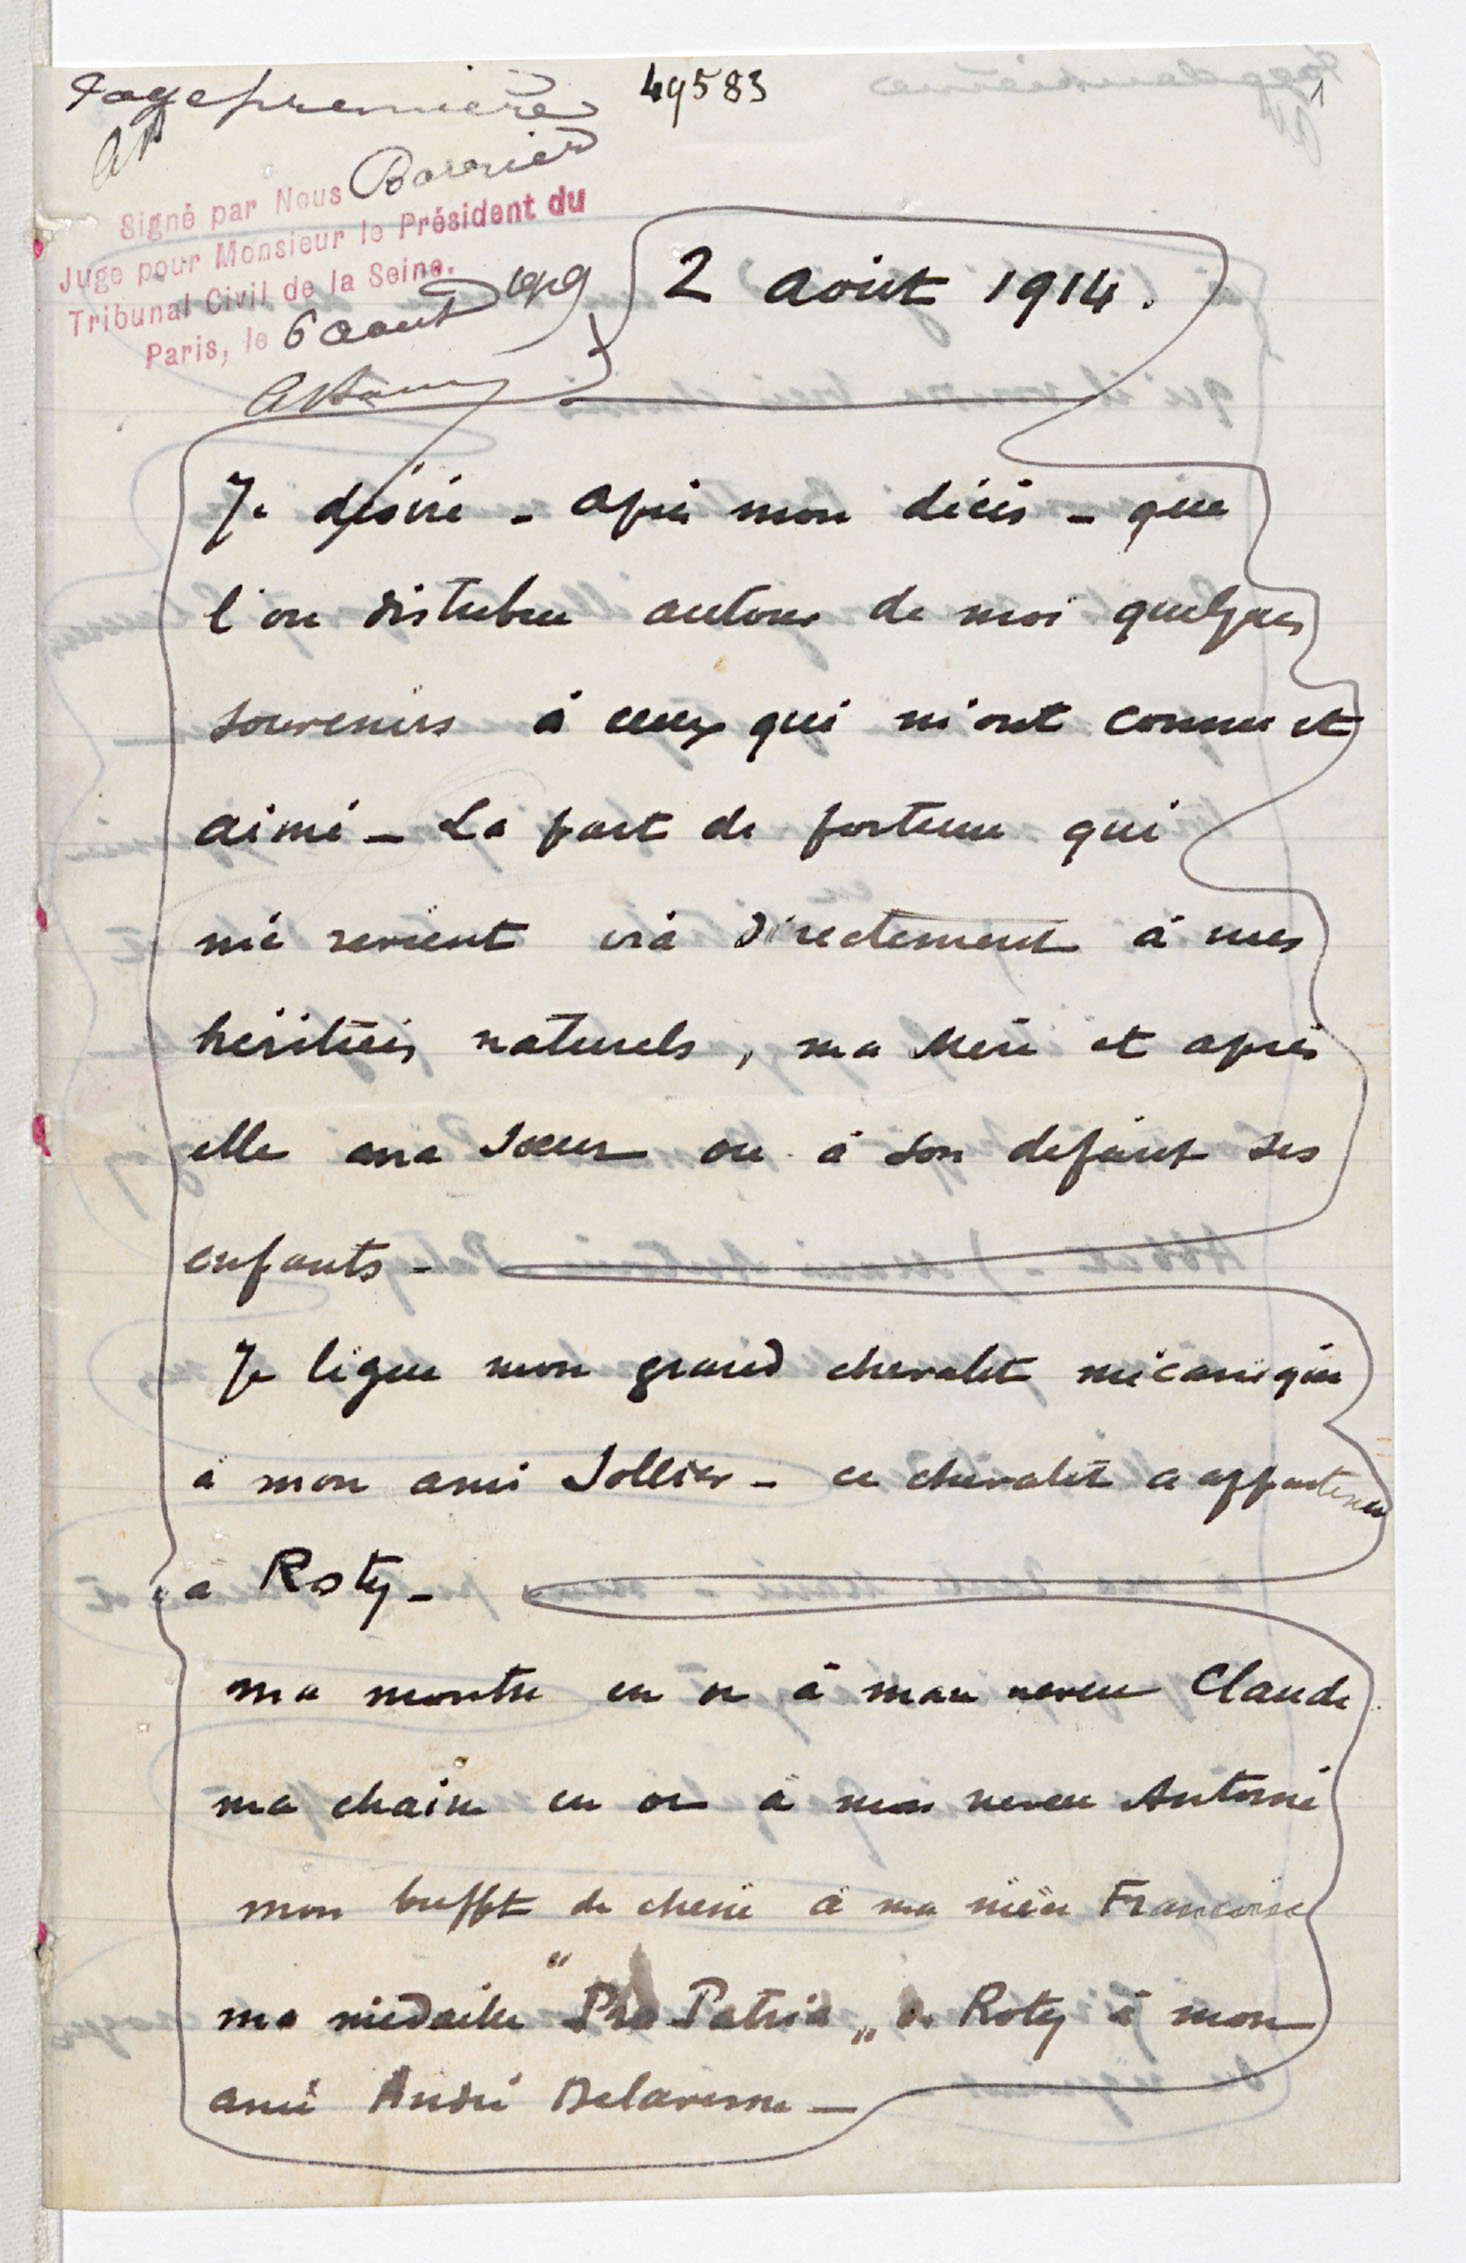 Page première
49583
1
AB
Signé par Nous Barrier
Juge pour Monsieur le Président du
Tribunal Civil de la Seine.
Paris, le 6 aout 1919
2 août 1914.
Je désire - après mon décès - que
l'on distribue autour de moi quelques
souvenirs à ceux qui m'ont connu et
aimé - La part de fortune qui
me revient ira directement à mes
héritiers naturels, ma Mère et après
elle ma soeur ou à son défaut ses
enfants -
Je lègue mon grand chevalet mécanique
à mon ami Jollier - ce chevalet a appartenu
à Roty -
ma montre en or à mon neveu Claude
ma chaine en or à mon neveu Antoine
mon buffet de chene à ma nièce Françoise
ma médaille "Pro Patria" de Roty à mon
ami André Delavesne -